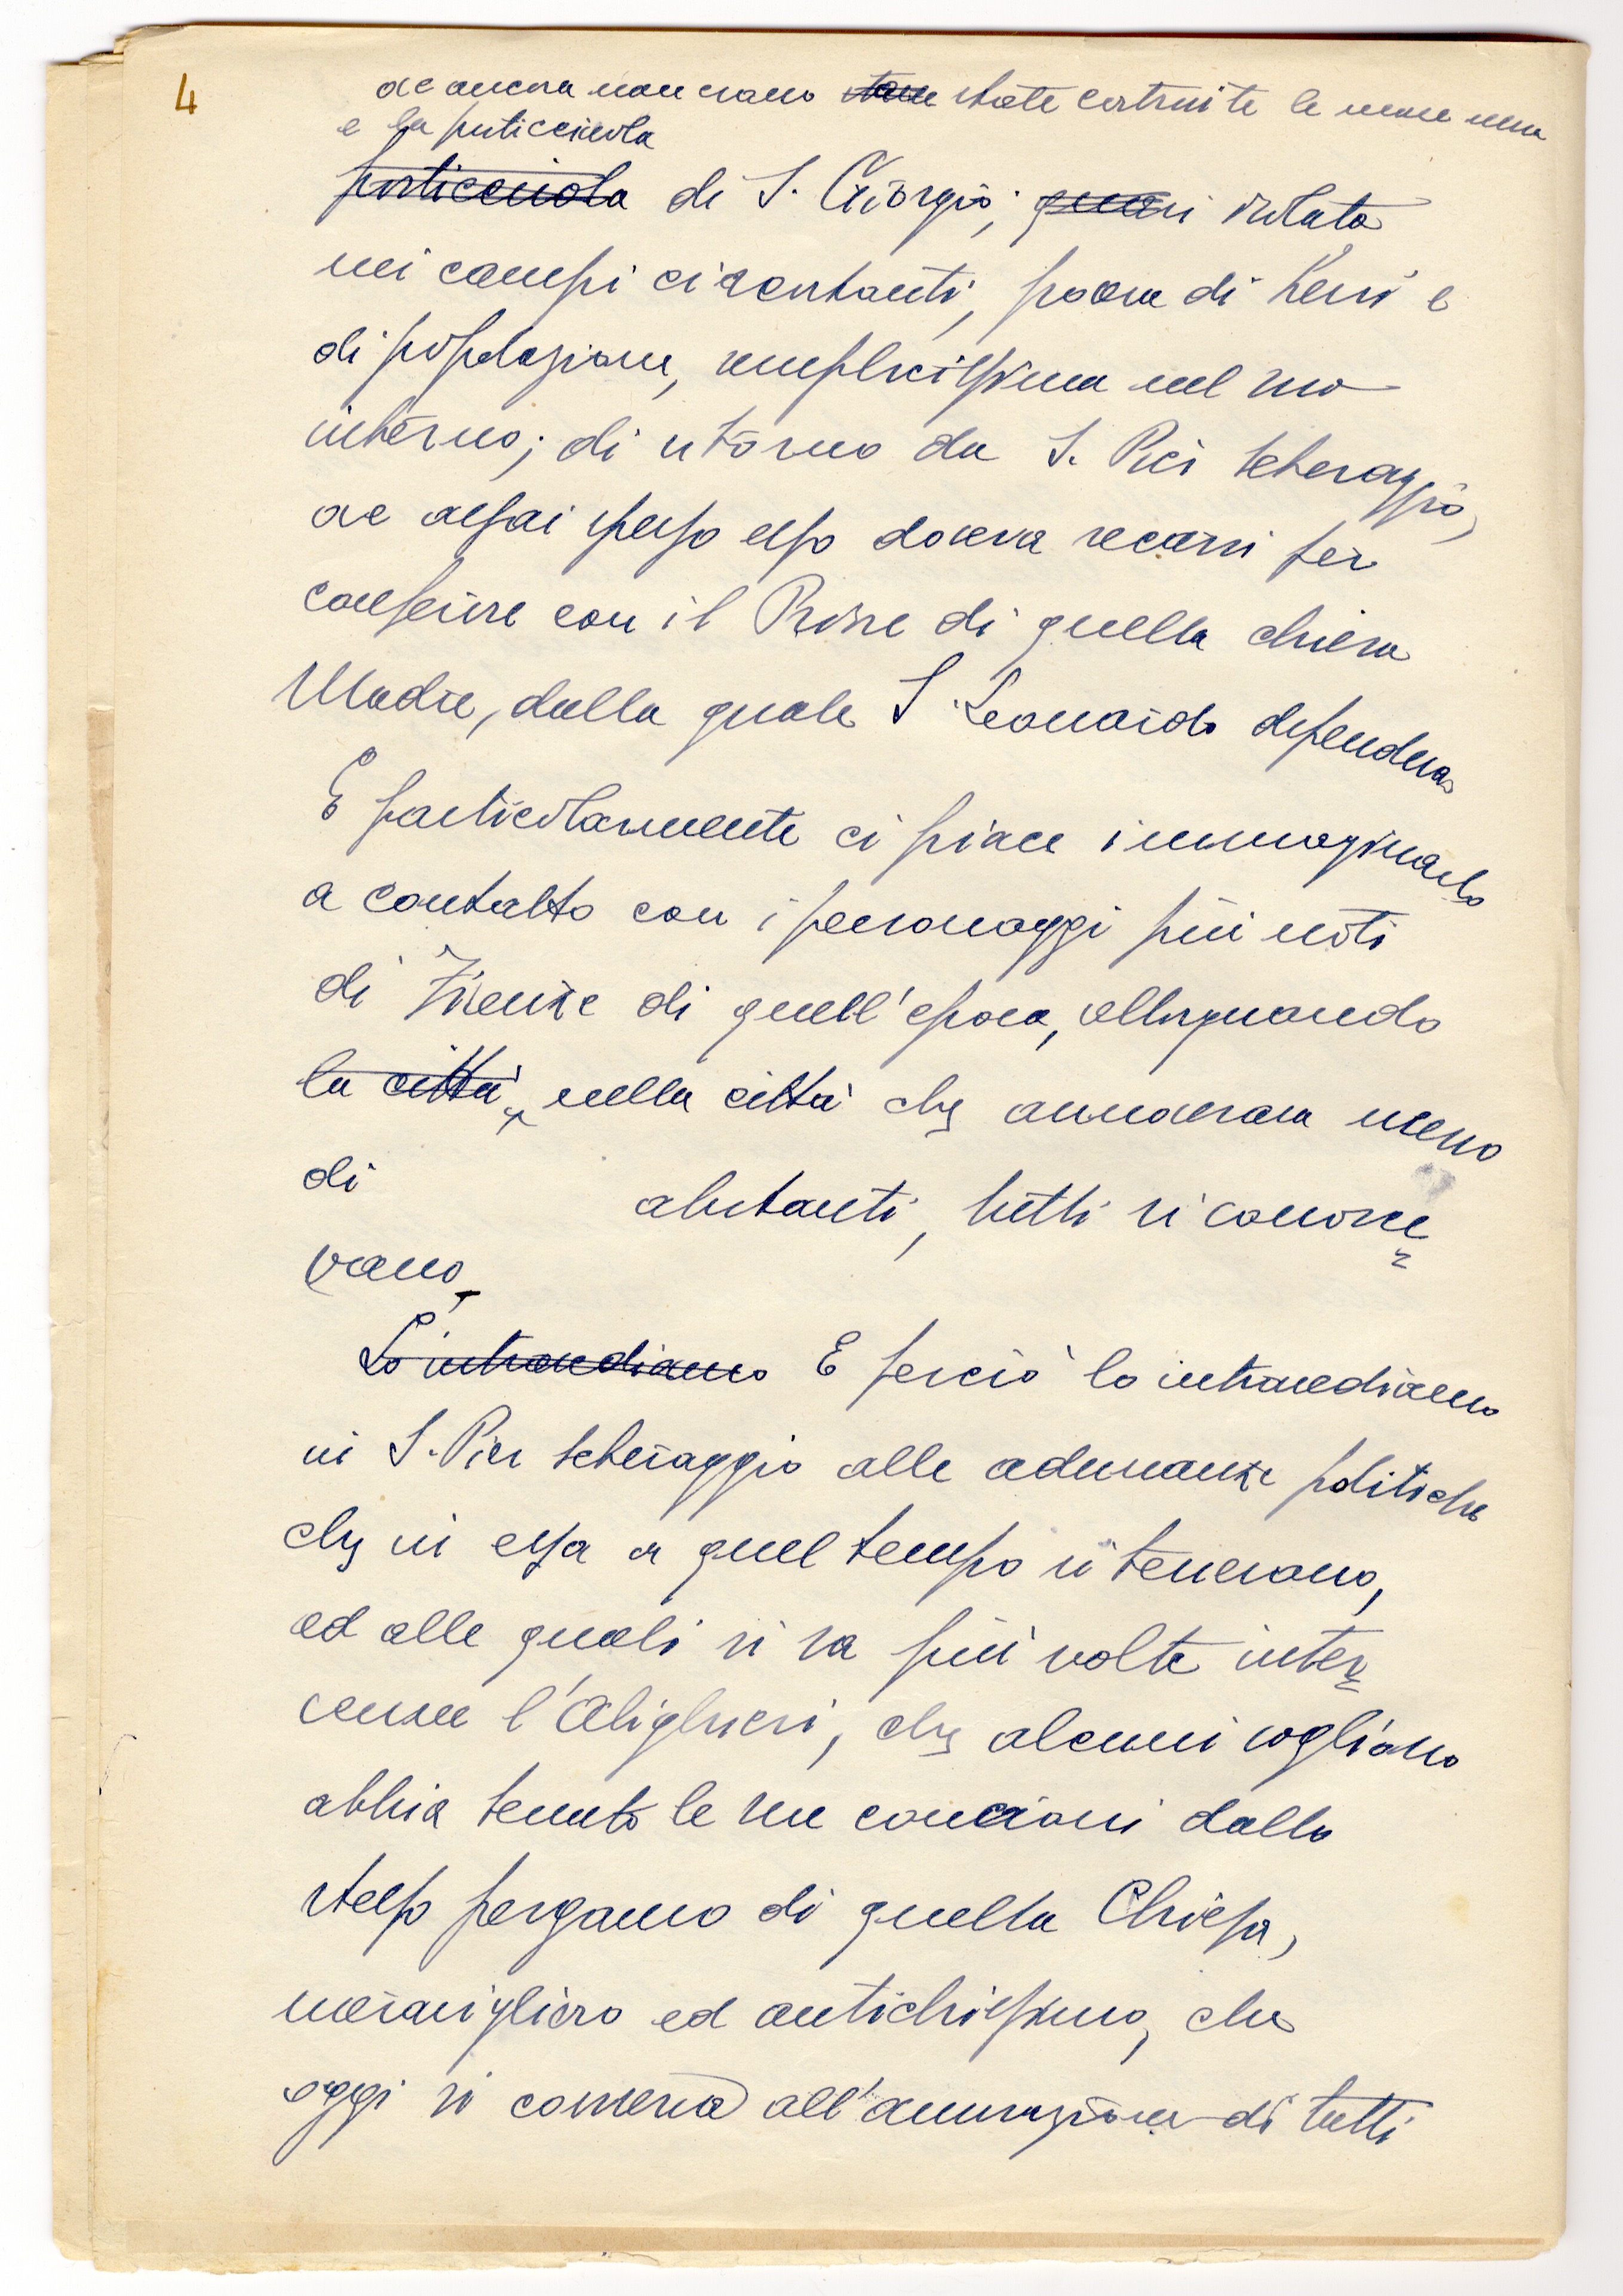 4
ove ancora non erano ~~state~~ state costruite le nuove mura
e la porticciuola
~~porticciuola~~ di S. Giorgio; ~~quasi~~ isolata
nei campi circostanti, povera di beni e
di popolazione, semplicissima nel suo
interno; di ritorno da S. Pier Scheraggio,
ove assai spesso esso doveva recarsi per
conferire con il Priore di quella chiesa
Madre, dalla quale S. Leonardo dependeva
E particolarmente ci piace immaginarlo
a contatto con i personaggi più noti
di Firenze di quell'epoca, allorquando
~~la città,~~ nella città che annoverava meno
di abitanti, tutti si conosce
vano,
~~Lo intravediamo~~ E perciò lo intravediamo
in S. Pier Scheraggio alle adunanze politiche
che in essa a quel tempo si tenevano,
ed alle quali si sa più volte inter
venne l'Alighieri, che alcuni vogliono
abbia tenuto le sue concioni dallo
stesso pergamo di quella Chiesa,
meraviglioso ed antichissimo, che
oggi si conserva all'ammirazione di tutti